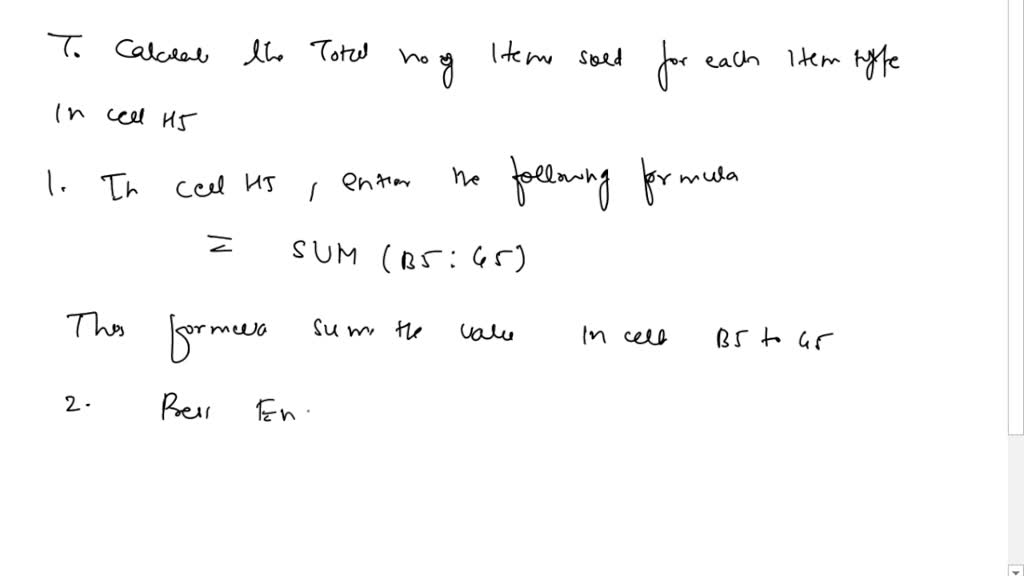 To Calculate the Total no of Items sold for each item type
In cell H5
1. In cell H5, enter the following formula
= SUM (B5:G5)
This formula sums the value in cell B5 to G5
2. Press En